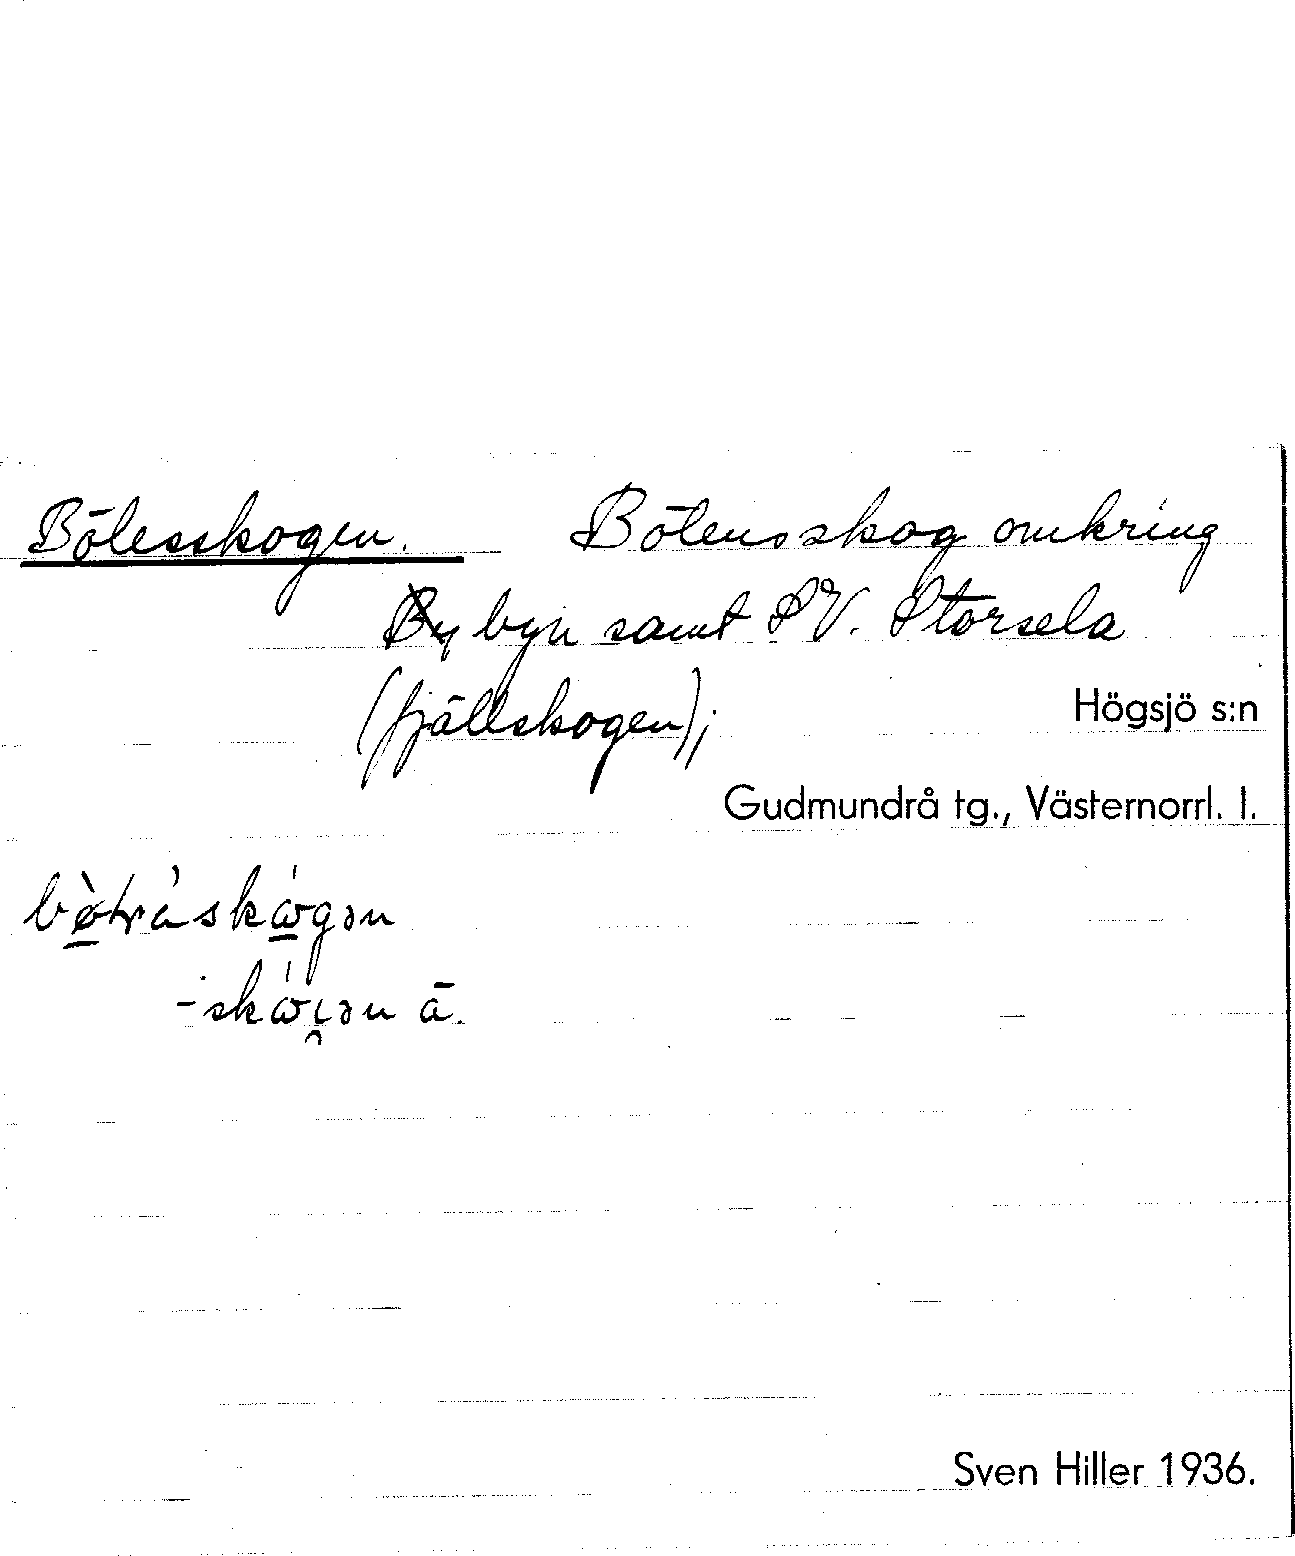 Bölesskogen. Bölens skog omkring
byn samt SV. Storsela
(fjällskogen);
Högsjö s:n
Gudmundrå tg., Västernorrl. l.
Sven Hiller 1936.